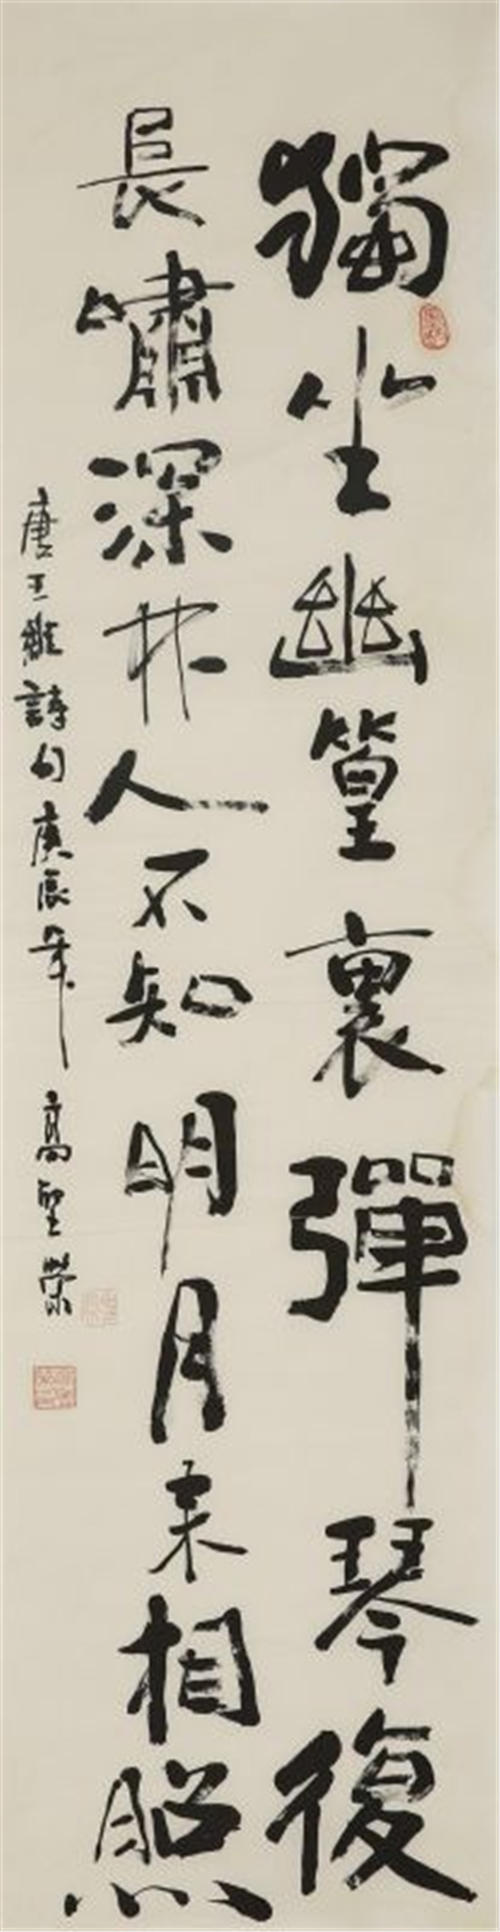 獨坐幽篁裏彈琴復
長嘯深林人不知明月来相照
唐王維詩句庚辰年 高聖榮